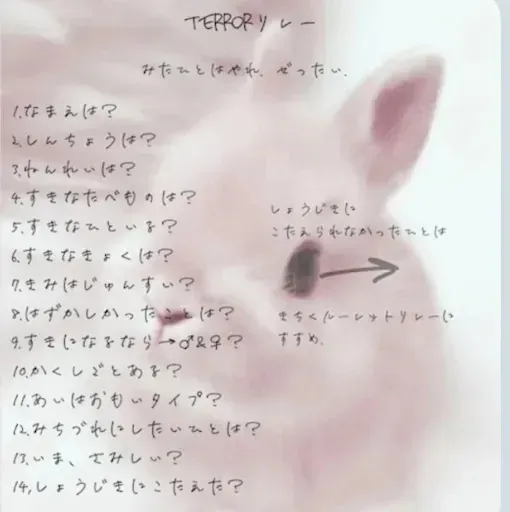 TERRORリレー
みたひとはやれ、ぜったい、
1.なまえは?
2.しんちょうは?
3.ねんれいは?
4.すきなたべものは?
5.すきなひといる?
6.すきなきょくは?
7.きみはじゅんすい?
8.はずかしかったことは?
9.すきになるなら→♂&♀?
10.かくしごとある?
11.あいはおもいタイプ?
12.みちづれにしたいひとは?
13.いま、さみしい?
14.しょうじきにこたえた?
しょうじきに
こたえられなかったひとは
きちくルーレットリレーに
すすめ、